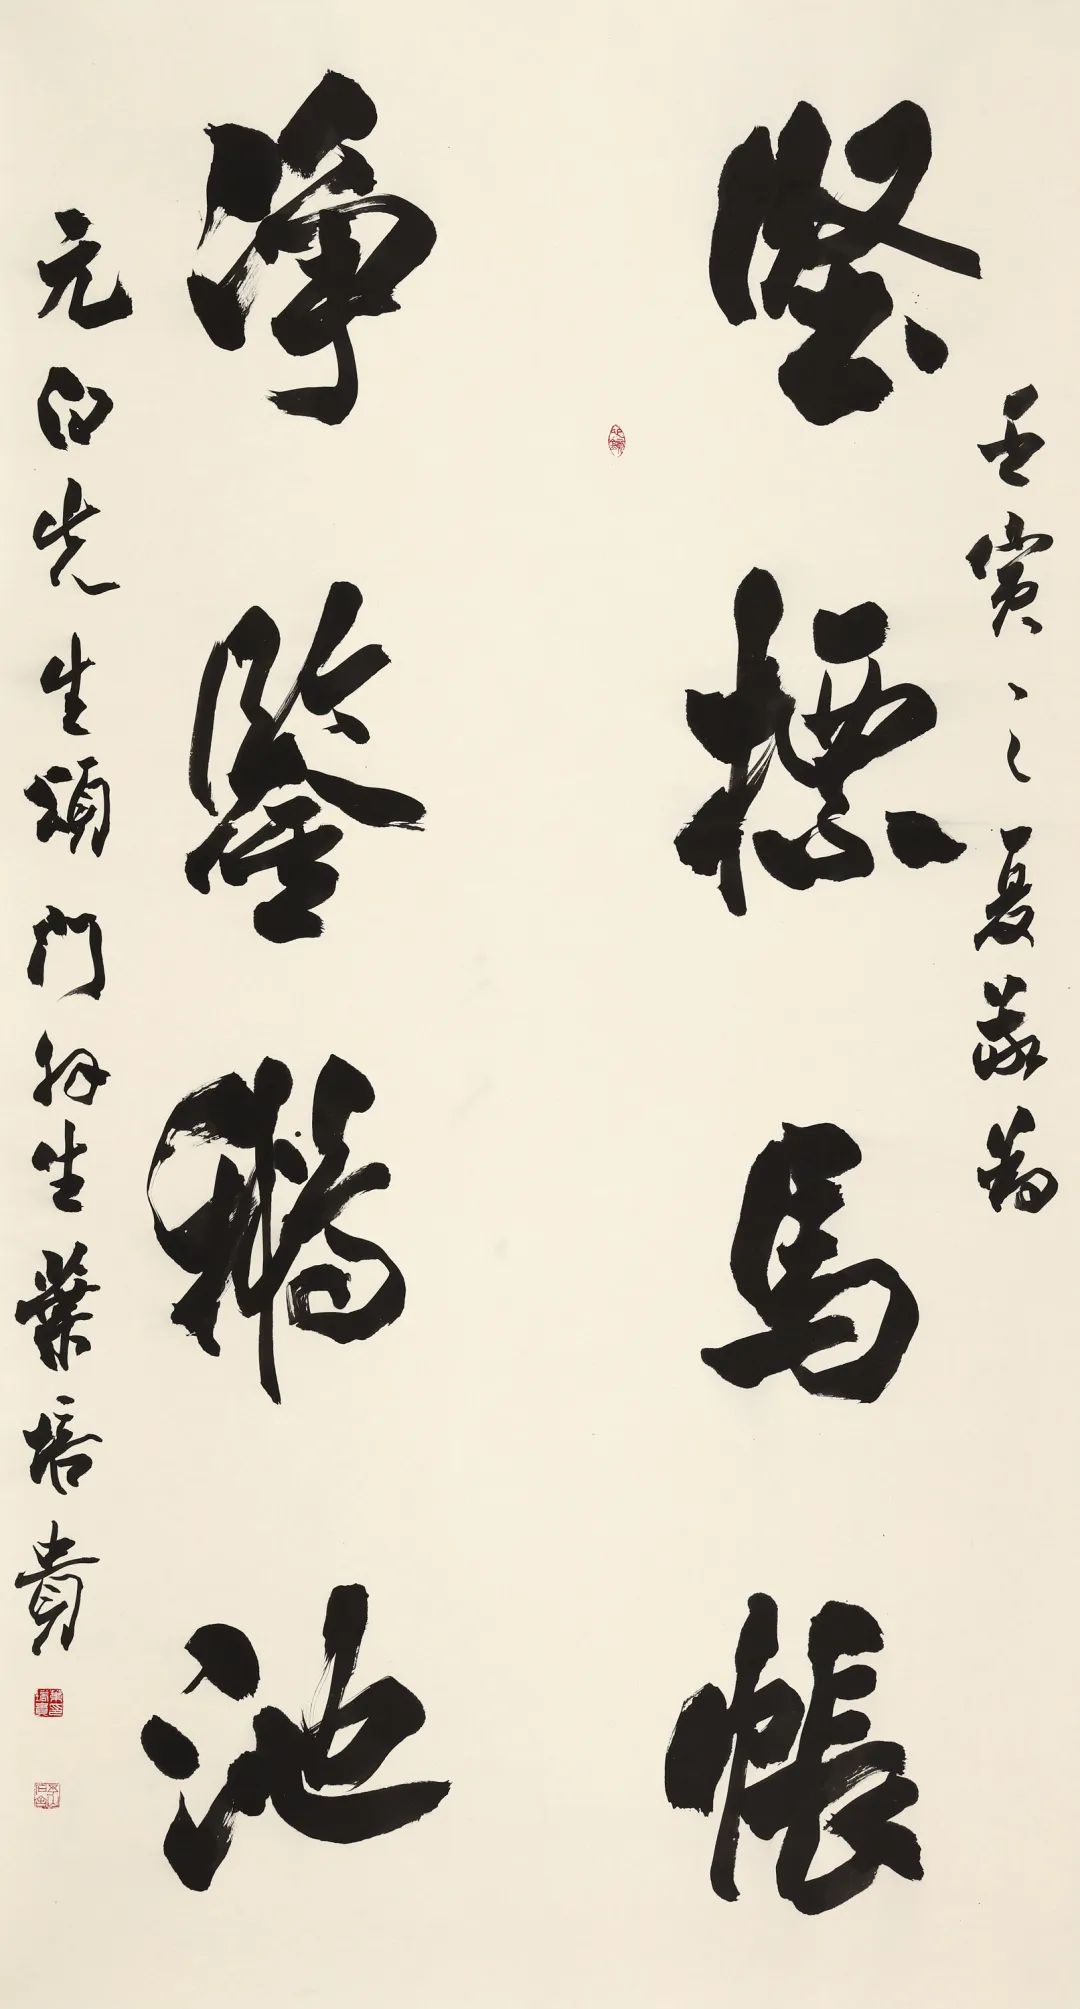 壬寅之夏為
堅標馬帳
淨鑒鵝池
元白先生頌門生葉培貴